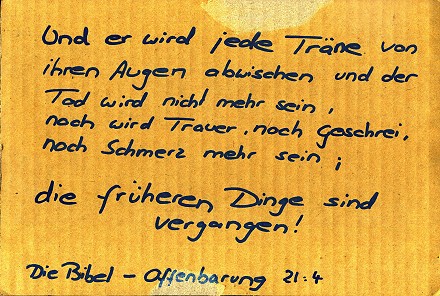 Und er wird jede Träne von
ihren Augen abwischen und der
Tod wird nicht mehr sein,
noch wird Trauer, noch Geschrei,
noch Schmerz mehr sein;
die früheren Dinge sind
vergangen!
Die Bibel - Offenbarung 21:4